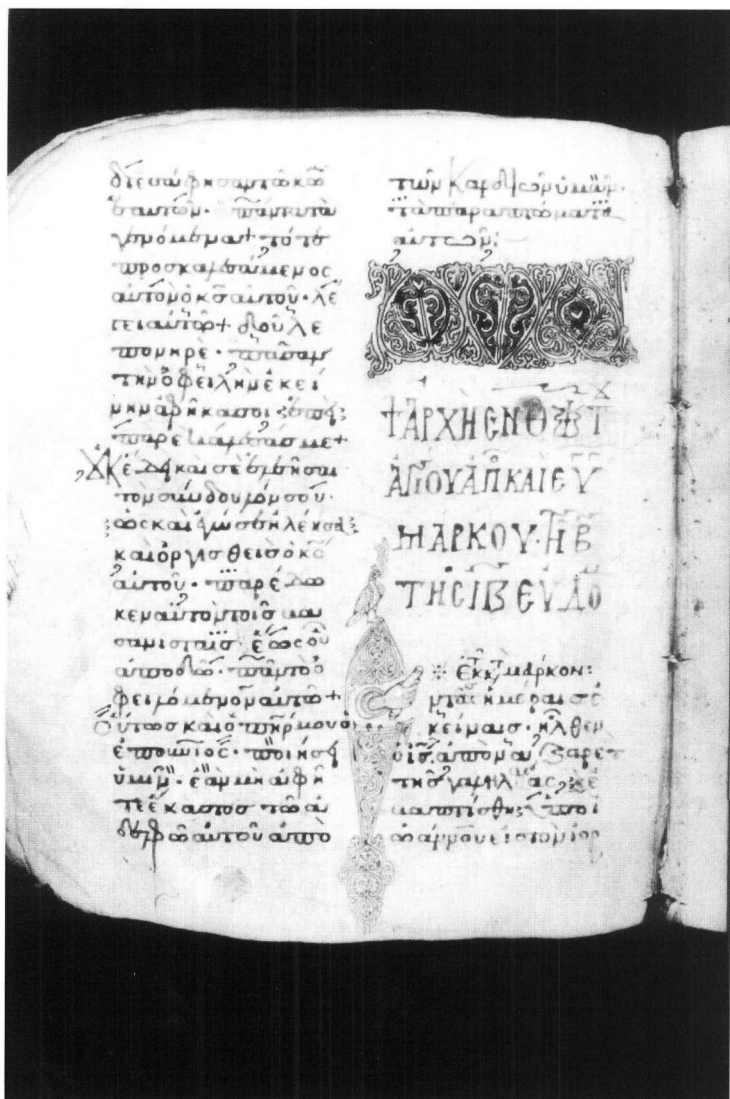 διεσάφησαν τῶ κῶ
ἑαυτῶν· πάντα τὰ
γενόμενα+ τότε
προσκαλεσάμενος
αὐτὸν ὁ κς αὐτοῦ· λέ
γει αὐτῶ+ δοῦλε
πονηρὲ· πᾶσαν
τὴν ὀφειλὴν ἐκεί
νην ἀφῆκα σοι· ἐπεὶ
παρεκάλεσάς με+
οὐκ ἔδει καὶ σὲ ἐλεῆσαι
τὸν σύνδουλόν σου·
ὡς καὶ ἐγώ σε ἠλέησα
καὶ ὀργισθεὶς ὁ κς
αὐτοῦ· παρέδω
κεν αὐτὸν τοῖς βα
σανισταῖς· ἕως οὗ
ἀποδῶ· πᾶν τὸ ὀ
φειλόμενον αὐτῶ+
Οὕτως καὶ ὁ πηρ μου ὁ
ἐπουνιος· ποιήσει
ὑμῖν· ἐὰν μὴ ἀφῆ
τε ἕκαστος τῶ ἀ
δελφῶ αὐτοῦ ἀπὸ
τῶν καρδιῶν ὑμῶν·
τὰ παραπτώματα
αὐτῶν:
+ ἈΡΧῊ ΣῪΝ ΘΩ
ἉΓΊΟΥ ἈΠ ΚΑῚ ΕΥ
ΜΆΡΚΟΥ·
ΤΗΣ ΙΒ ΕΥΔΟ
ΕΚ Τ ΜΆΡΚΟΝ:
μέραις ἐ
κείναις· ἦλθεν
ὁ ις ἀπὸ ναζαρὲτ
τῆς γαλιλαίας· καὶ ἐ
βαπτίσθη ὑπὸ ἰ
ωάννου εἰς τὸν ἰορ